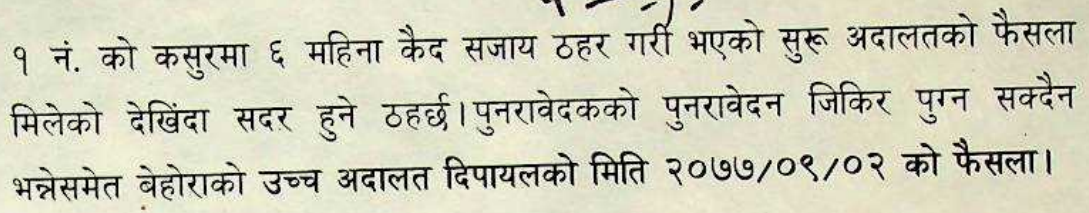 १ नं. को कसुरमा ६ महिना कैद सजाय ठहर गरी भएको सुरू अदालतको फैसला
मिलेको देखिंदा सदर हुने ठहर्छ।पुनरावेदकको पुनरावेदन जिकिर पुग्न सक्दैन
भन्नेसमेत बेहोराको उच्च अदालत दिपायलको मिति २०७७/०९/०२ को फैसला।